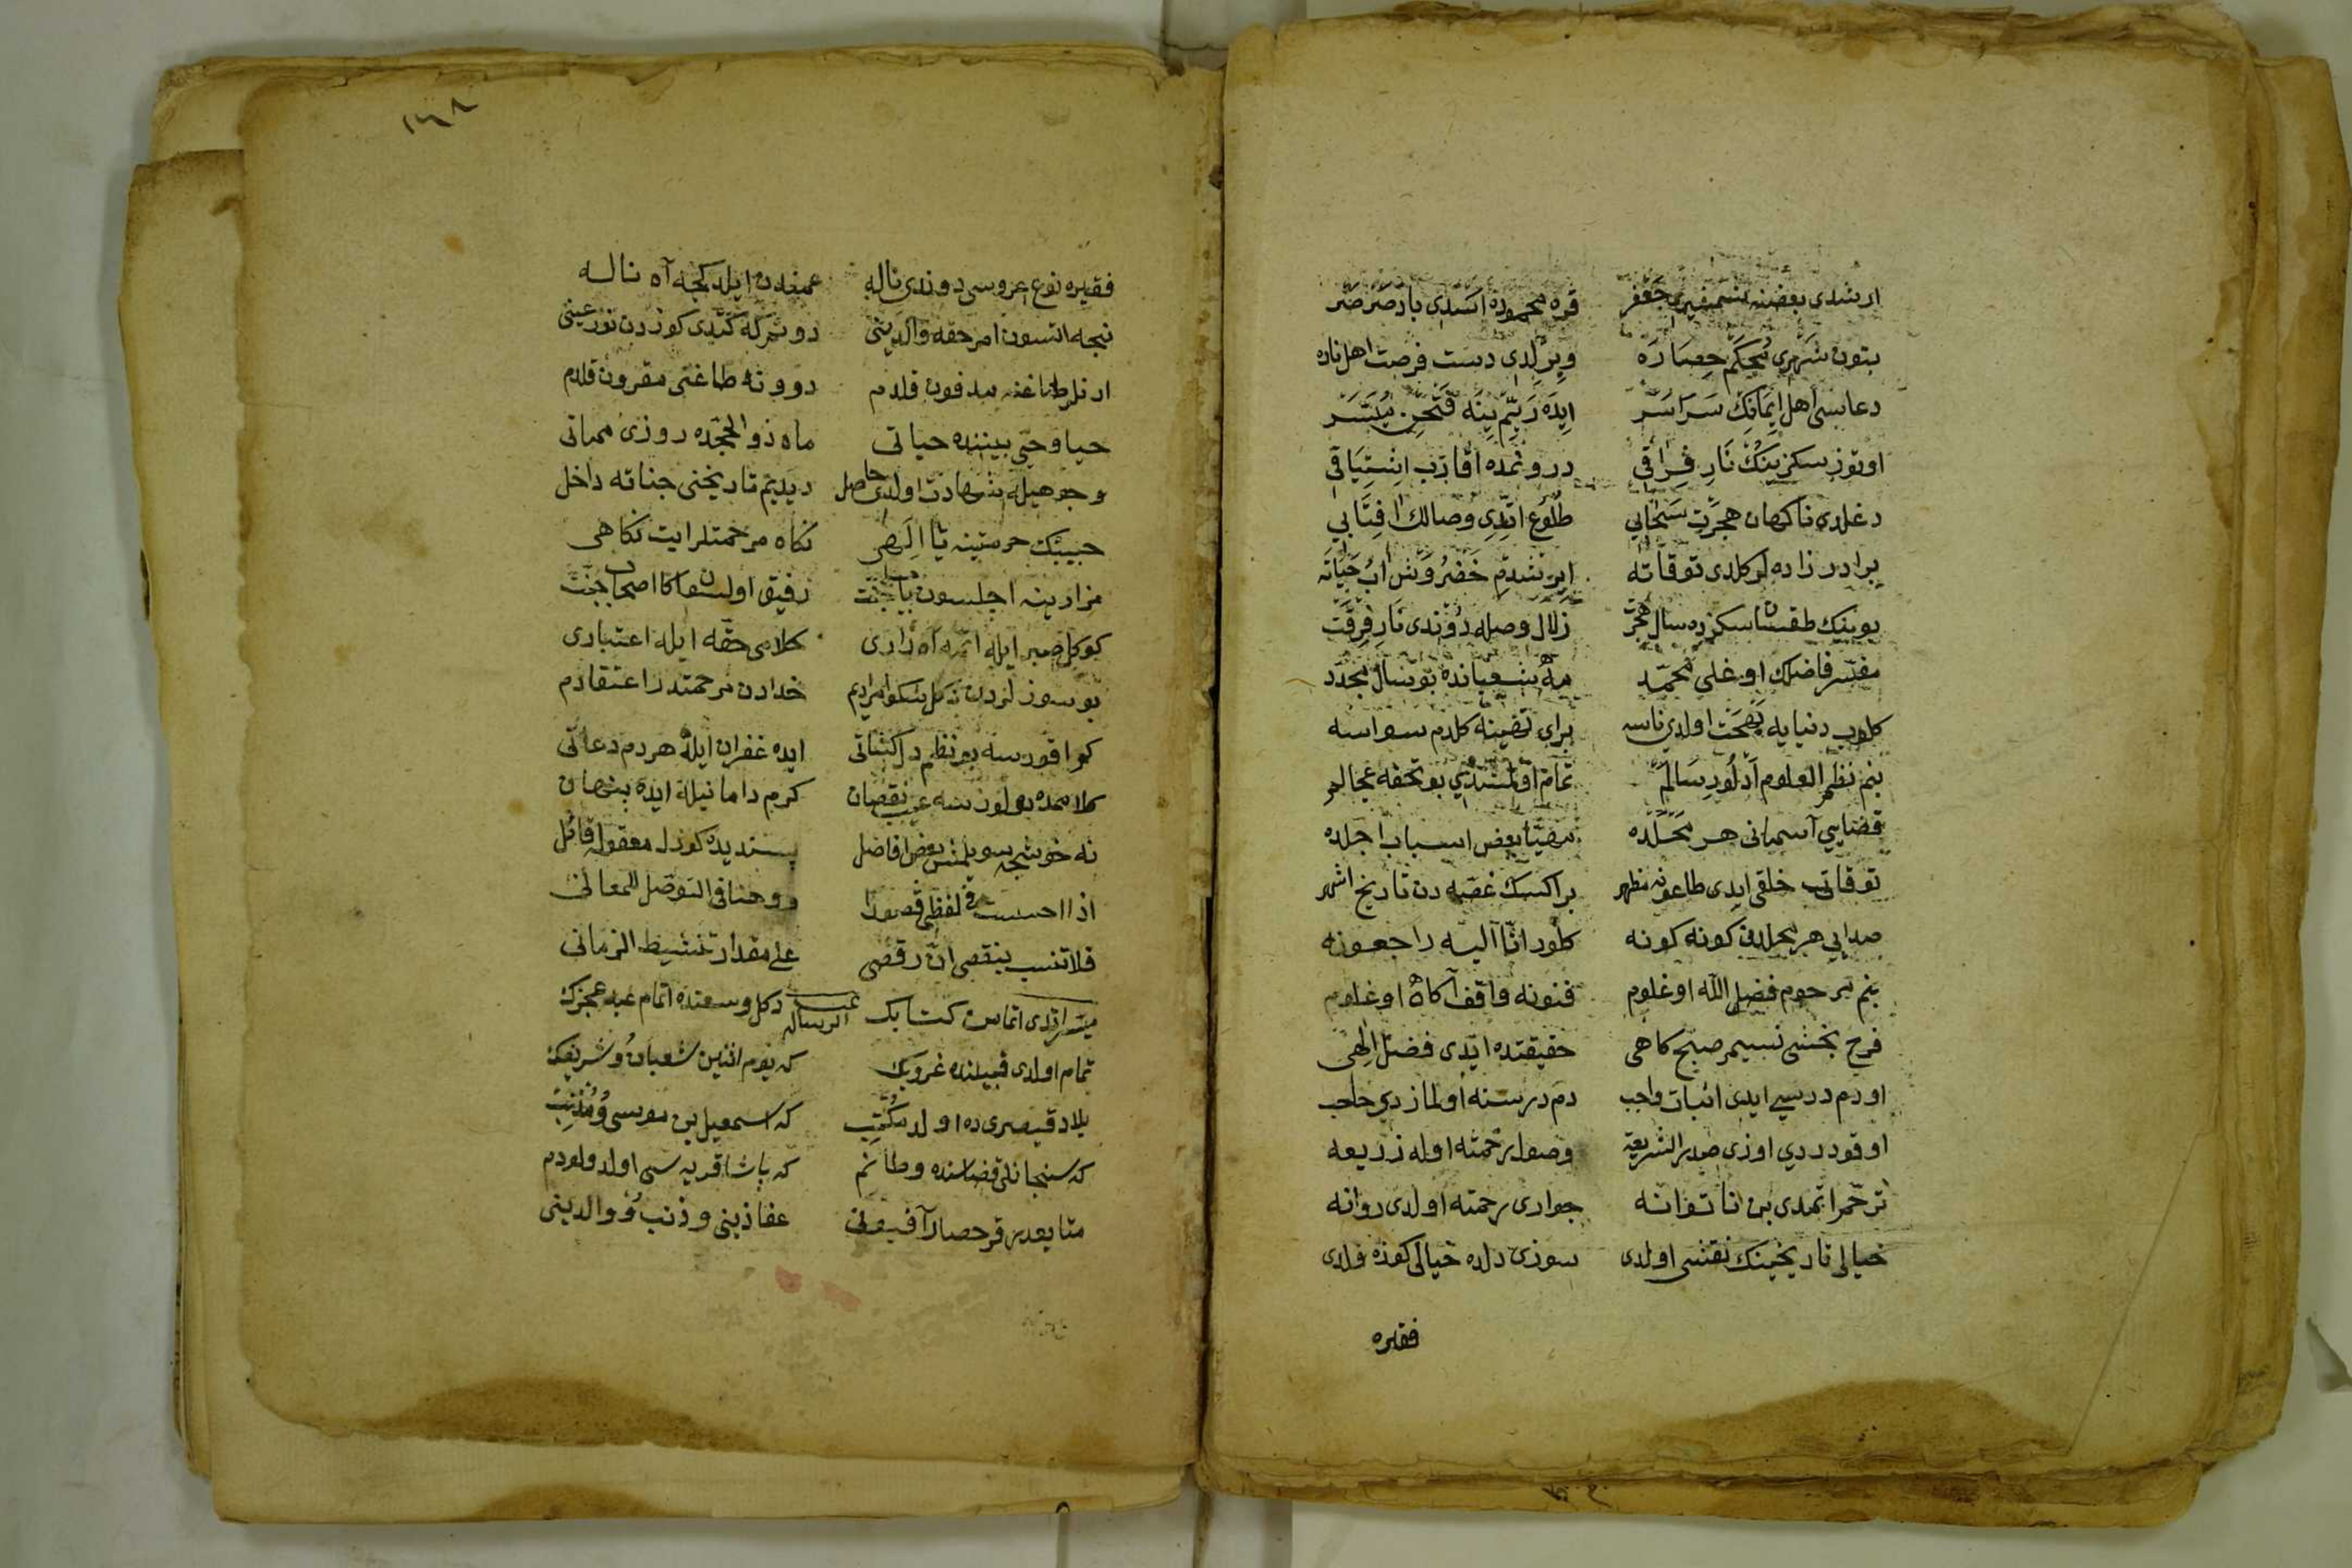 ارشدی بعضنه جعفر قره محموده اسدی باد صرصر
بتون شهری محکم حصاره ویرلدی دست فرصت اهل ناره
دعاسی اهل ایمانك سراسر ایده ربیم ینه فتحن میسر
اوتوز سکز بیك نار فراقی درونمده اشتیاقی
دغلدی ناکهان هجرت سحابی طلوع اتدی وصالك افتابی
برادر زاده لر کلدی توقاته ایرشدم خضروش اب حیاته
بوبیك طقسان سکزده سال هجرت زلال وصله دوندی نار فرقت
مفسر فاضلك اوغلی محمد مه شعبانده بو سال مجدد
کلوب دنیایه بهجت اولدی ناسه برای تهنیه کلدم سواسه
بنم نظم العلوم سالم تمام اولمشدی بو تحفه عجالم
قضایی آسمانی هر محلده مهیا بعض اسباب اجلده
توقاتب خلقی ایدی طاعونه مظهر براکسك غصه دن تاریخ اشهر
صدایی هر محلدن کونه کونه کلور انا الیه راجعونه
بنم مرحوم فضل الله اوغلوم فنونه واقف آکاه اوغلوم
فرح بخشی نسیم صبح کاهی حقیقتده ایدی فضل الهی
اودم درسی ایدی اثبات واجب دم درسنه اولمازدی حاجب
اوقوردردی اوزی صدر الشریعه وصول رحمته اوله ذریعه
ترحم اتمدی بن ناتوانه جواری رحمته اولدی روانه
خیالی تاریخینك نقشی اولدی سوزی دلده خیالی کوزه قلدی
فقیره
١٦٨
فقیره نوع عروسی دوندی ناله غمندن ایلدکجه آه ناله
نیجه اتسون امر حقه والدینی دونمرکه کتدی کوزدن نور عینی
ارنلر طاغنه مدفون قلدم درونه طاغنی مقرون قلدم
حیا وحی بیننده حیاتی ماه ذوالحجده روزی مماتی
وجوهیله شهادت اولدی حاصل دیدیم تاریخنی جناته داخل
حبیبك حرمتینه یا الهی نکاه مرحمتلرایت نکاهی
مزارینه اچلسون باب جنت رفیق اولسون اکا اصحاب جنت
کوکل صبر ایله اتمه آه زاری کلامی حقه ایله اعتباری
بو سوزلردن دکل شکوا مرادیم خدادن مرحمتدر اعتقادم
کم اقورسه بو نظم دلکشاتی ایده غفران ایله هردم دعاتی
کلاممده بولورسه عیب نقصان کرم دامانیله ایده پنهان
نه خوشجه سویلمش بعض افاضل پسندیده کوزل معقوله قائل
اذا احسست فی لفظی قصورا وحفافی التوصل للمعانی
فلا تنسب بنقصی ان رقصی علی مقدار تنشیط الزمانی
میسر اتدی اتمامن کتابك غیب الرساله دکل وسعتده اتمام عبد عجزك
تمام اولدی قبیلنده غروبك که یوم اثنین شعبان شریفك
بلاد قیصریده اولد مکتب که اسمعیل بن موسی ومذنب
که سنجانلی قضاسنده وطانم که پاشا قریه سی اولد ولودم
متابعدر قرحصار آفیونی عفا ذنبی وذنب ووالدینی